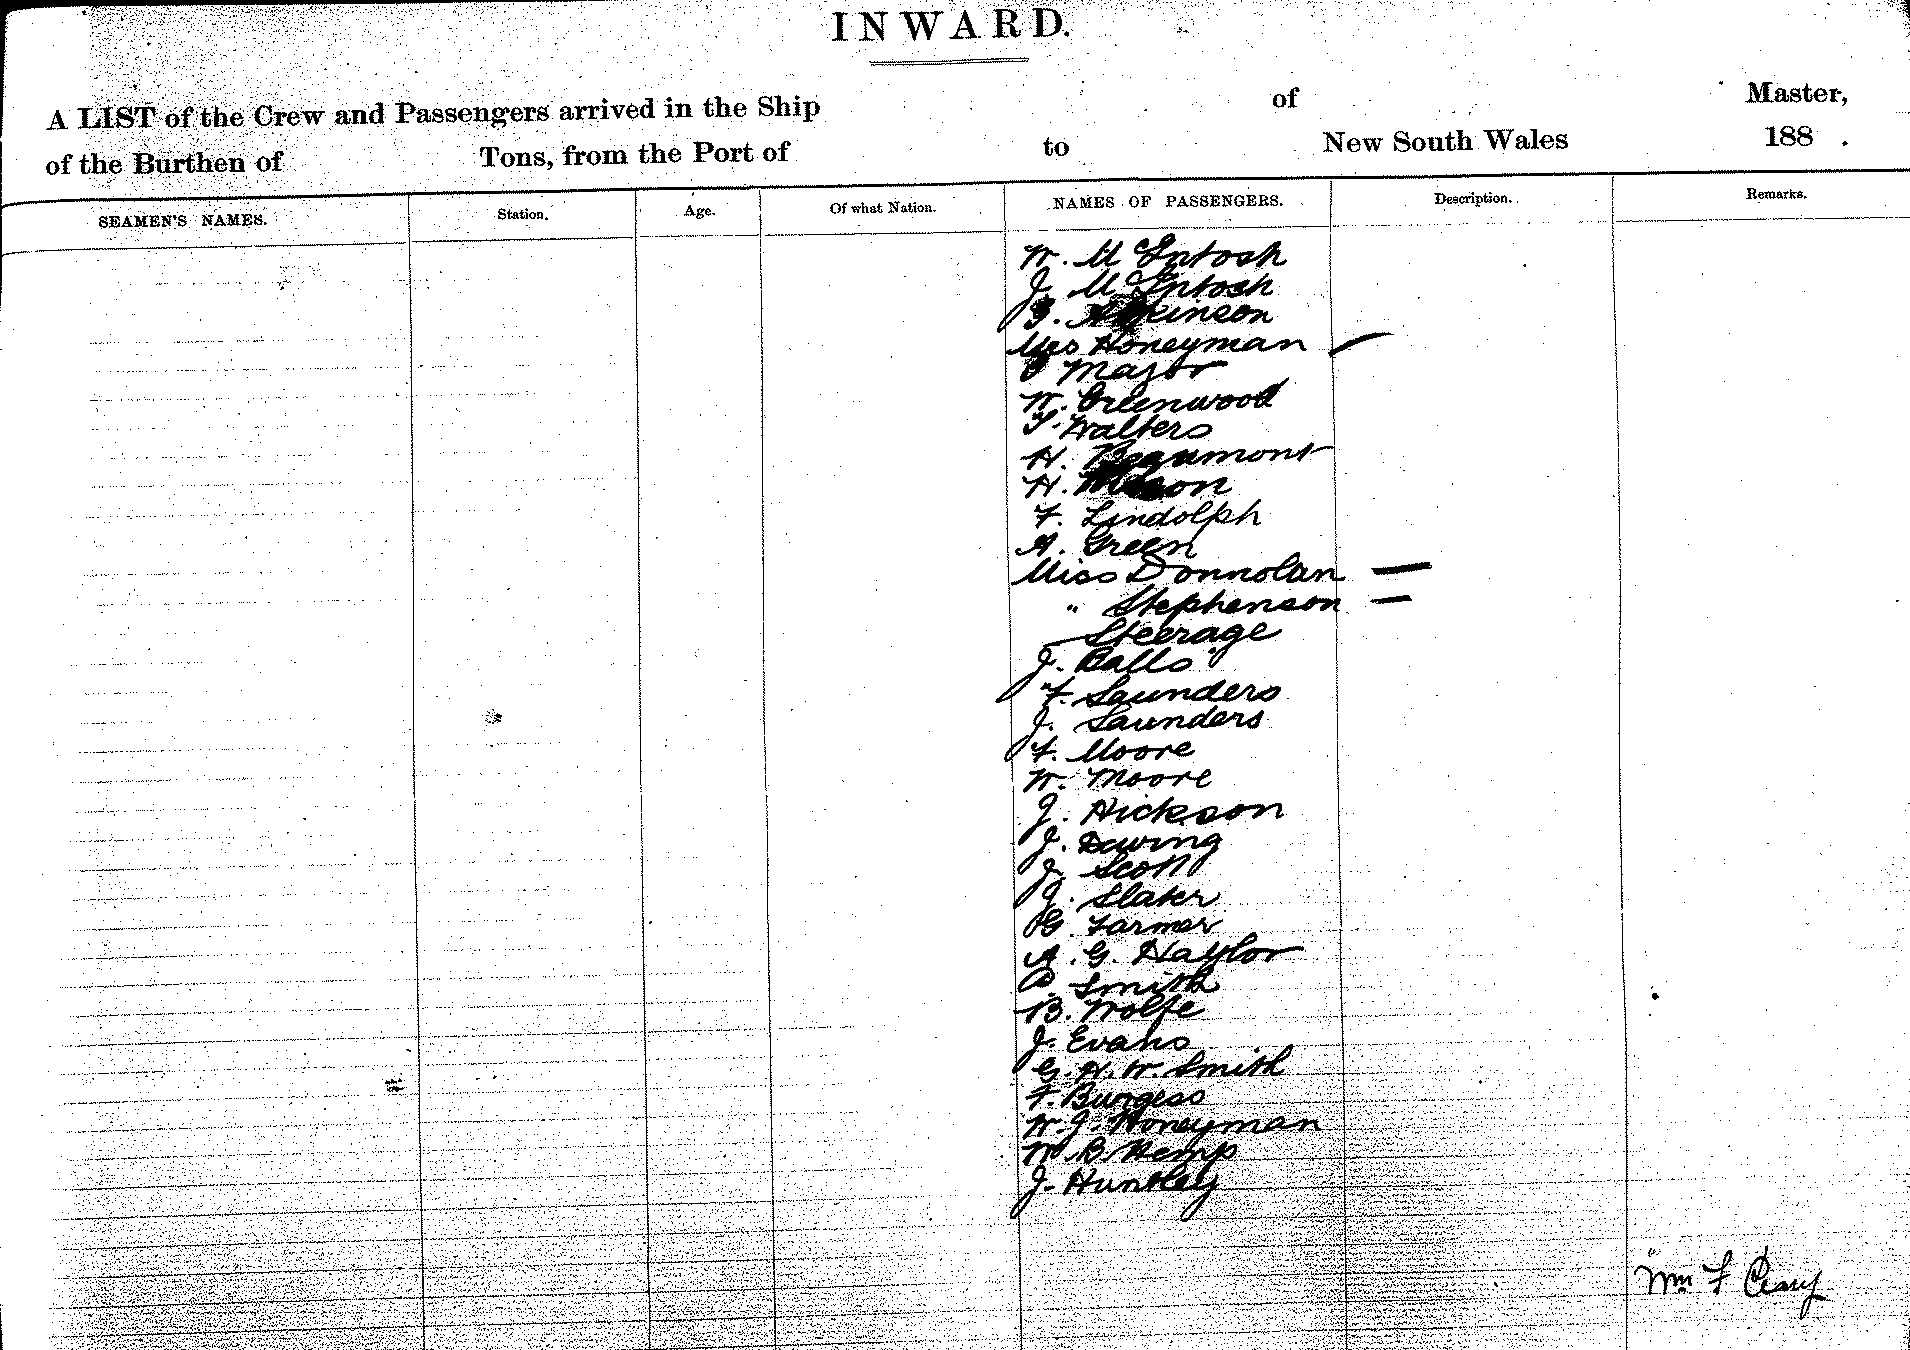 INWARD.
A LIST of the Crew and Passengers arrived in the Ship of Master,
of the Burthen of Tons, from the Port of to New South Wales 188 .
SEAMEN'S NAMES. Station. Age. Of what Nation. NAMES OF PASSENGERS. Description. Remarks.
W. McIntosh
J. McIntosh
Mrs Honeyman
Major
W. Greenwood
F. Walters
H. Beaumont
H.
F. Lindolph
A. Green
Miss Donnolan —
" Stephenson —
Steerage
J. Balls
F. Saunders
J. Saunders
F. Moore
W. Moore
J. Hickson
J. Dewing
J. Scott
J. Slater
G. Farmer
A. G. Haylor
P. Smith
B. Wolfe
J. Evans
G. H. W. Smith
F. Burgess
W. J. Honeyman
W. B. Kemp
J. Huntley
Wm F